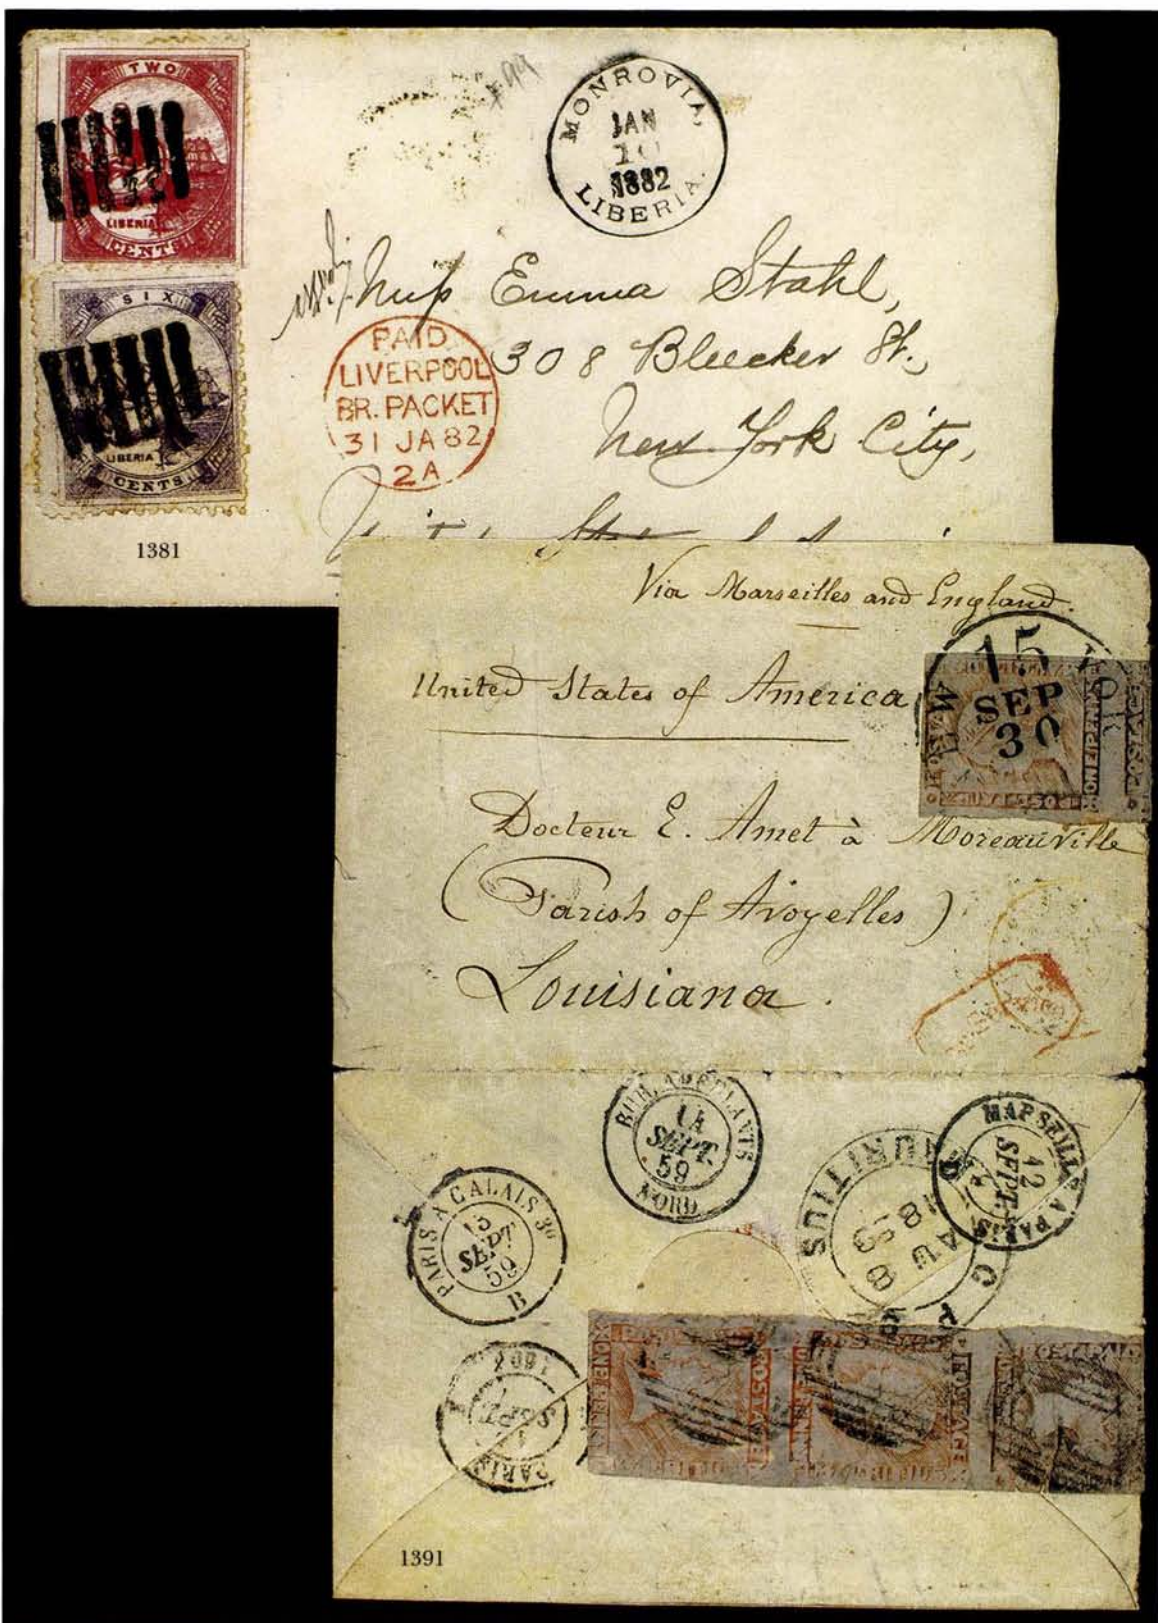 TWO
LIBERIA
CENTS
SIX
LIBERIA
CENTS
MONROVIA,
JAN
10
1882
LIBERIA.
Miss Emma Stahl,
308 Bleecker St.,
New York City,
PAID
LIVERPOOL
BR. PACKET
31 JA 82
2A
1381
Via Marseilles and England.
United States of America
15
SEP
30
Docteur E. Amet à Moreauville
(Parish of Avoyelles)
Louisiana.
14
SEPT.
59
NORD
MARSEILLE A PARIS
12
SEPT.
MAURITIUS
G.P.O
AU 8
PARIS A CALAIS
SEPT
59
B
SEPT
PARIS
POSTAGE
POSTAGE
POST PAID
1391